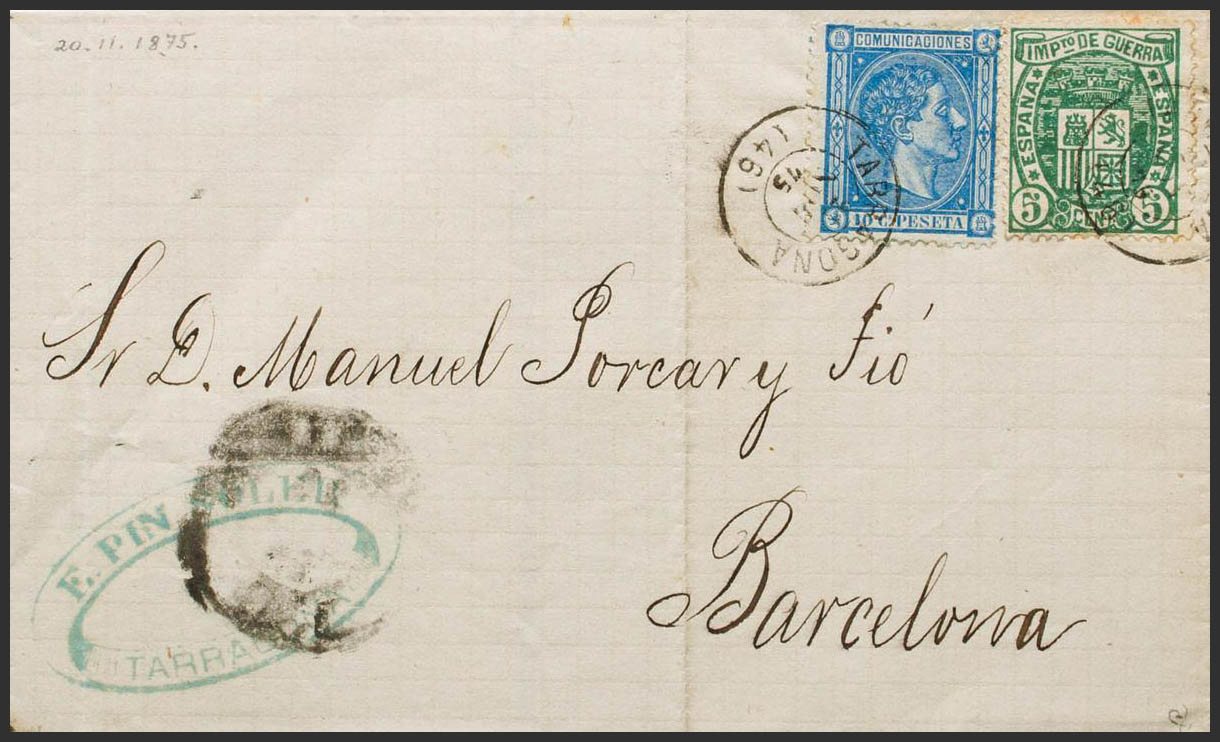 20.11.1875.
COMUNICACIONES
10 C. PESETA
IMPto DE GUERRA
ESPAÑA ESPAÑA
5 CENT 5
TARRAGONA
(46)
75
Sr D. Manuel Porcar y Fió
Barcelona
E. PIN SOLER
TARRAGONA